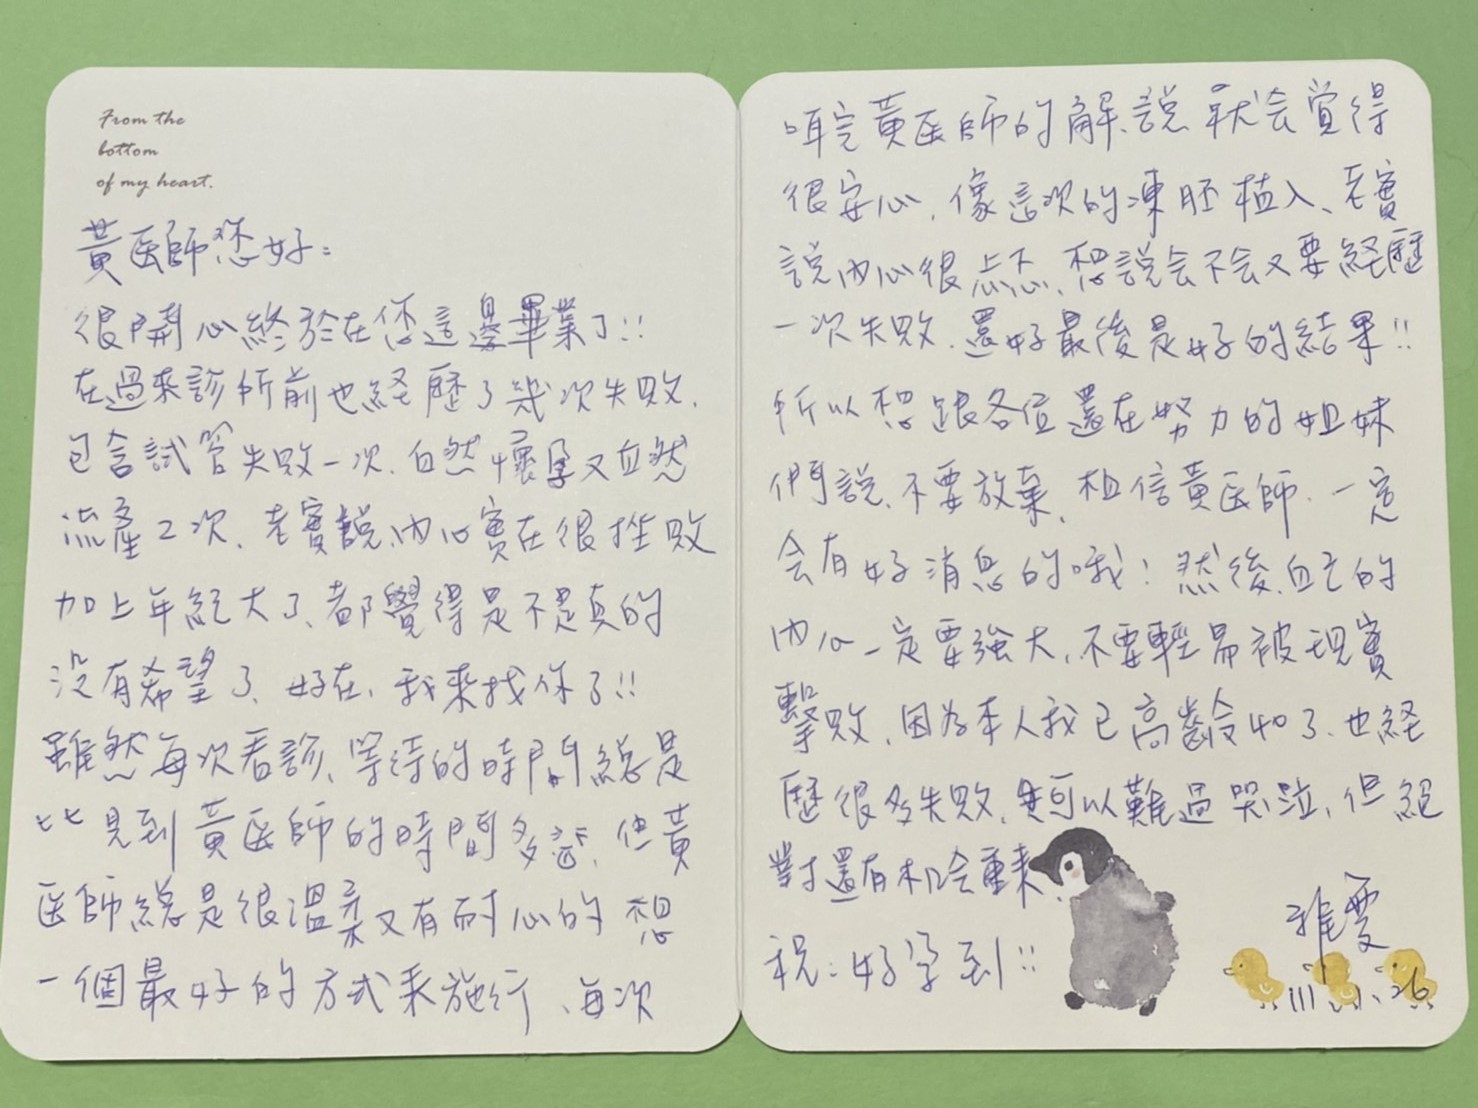 From the
bottom
of my heart.
黃医師您好：
很開心終於在您這邊畢業了!!
在過來診所前也経歷了幾次失敗.
包含試管失敗一次.自然懷孕又自然
流產2次、老實說、內心實在很挫敗
加上年紀大了、都覺得是不是真的
沒有希望了、好在，我來找你了!!
雖然每次看診、等待的時間總是
比見到黃医師的時間多.但黃
医師總是很溫柔又有耐心的想
一個最好的方式來施行、每次
聽完黃医師的解說就会覚得
很安心、像這次的凍胚植入、老實
說內心很忐忑、想說会不会又要経歷
一次失敗.還好最後是好的結果!!
所以想跟各位還在努力的姐妹
們說、不要放棄、相信黃医師、一定
会有好消息的哦! 然後、自己的
內心一定要強大、不要輕易被現實
擊敗、因為本人我已高齡40了、也経
歷很多失敗、是可以難過哭泣、但絕
對還有机会重來
祝：好孕到!!
雅雯
111.1.26